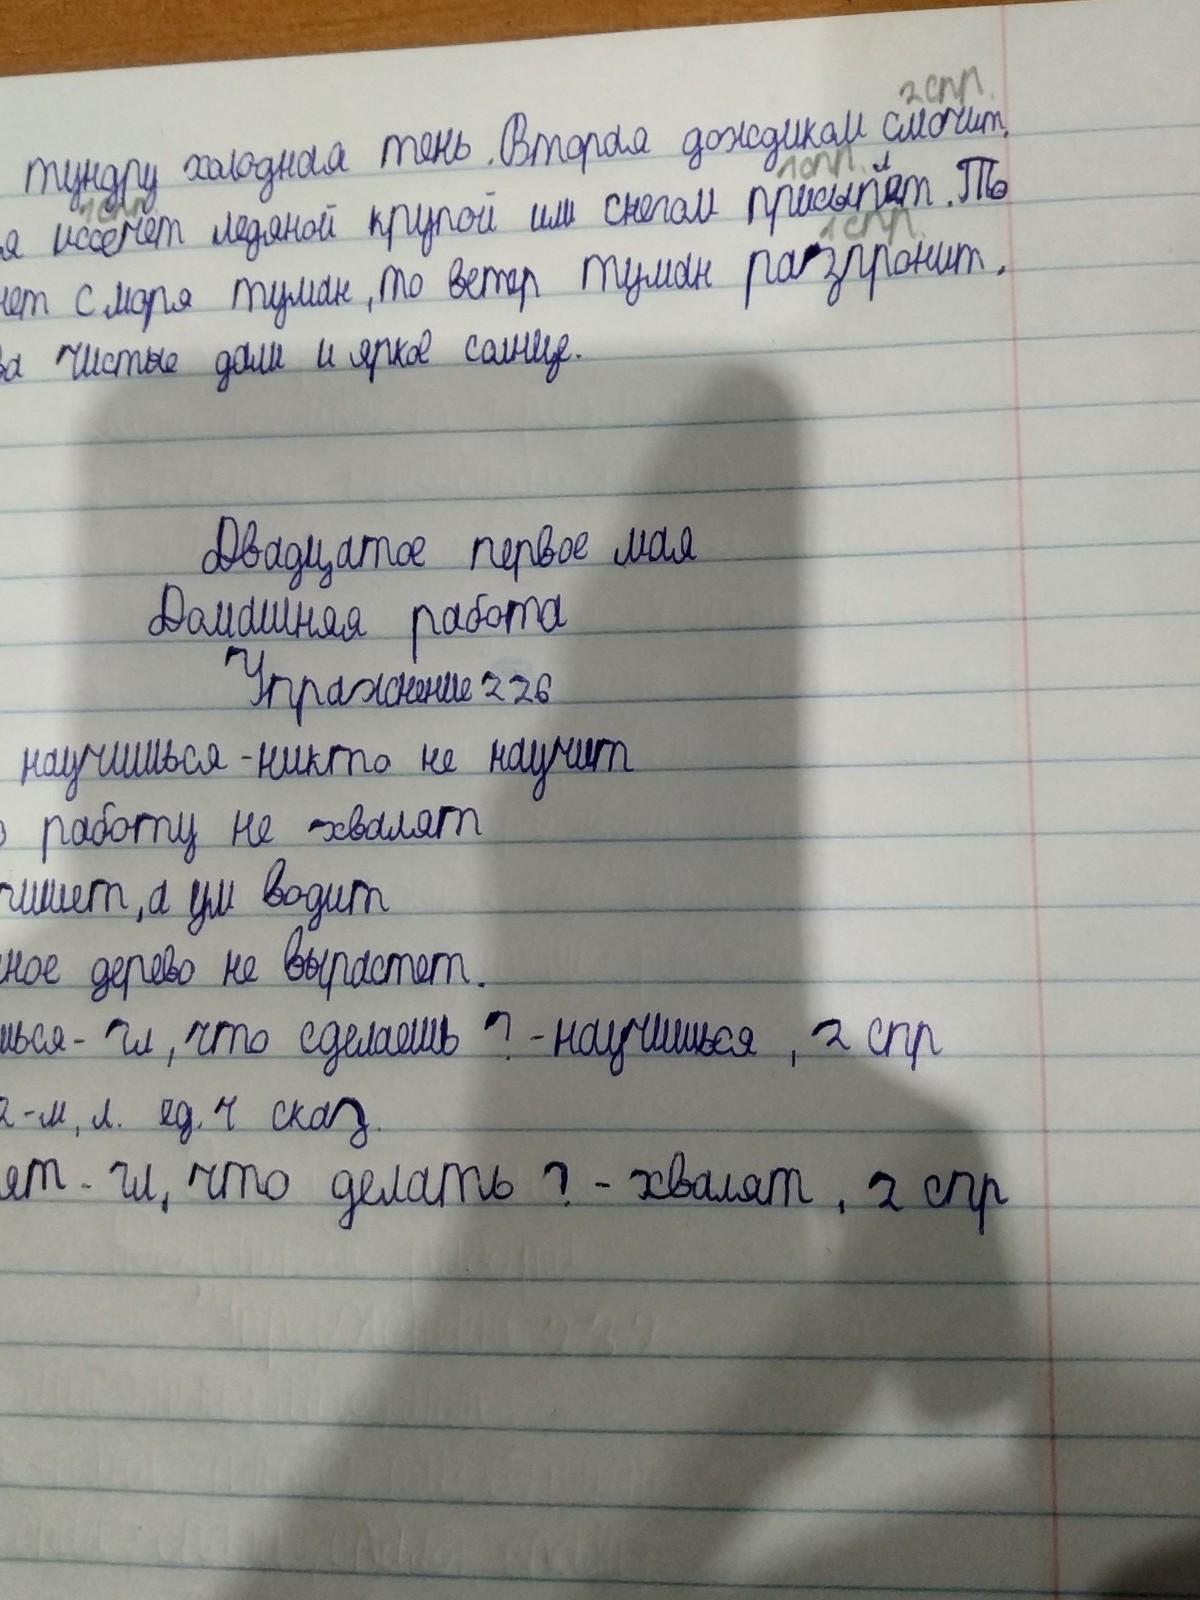 2 спр.
тундру холодная тень. Вторая дождиком смочит,
1 спр. 1 спр. л
я иссечет ледяной крупой или снегом присыпет. То
1 спр.
нет с моря туман, то ветер туман разпронит.
ва чистые дали и яркое солнце.
Двадцатое первое мая
Домашняя работа
Упражнение 226
научишься - никто не научит
о работу не хвалят
пишет, а ум водит
ное дерево не вырастет.
шься - гл, что сделаешь? - научишься, 2 спр
2-м, л. ед. ч сказ.
ят - гл, что делать? - хвалят, 2 спр